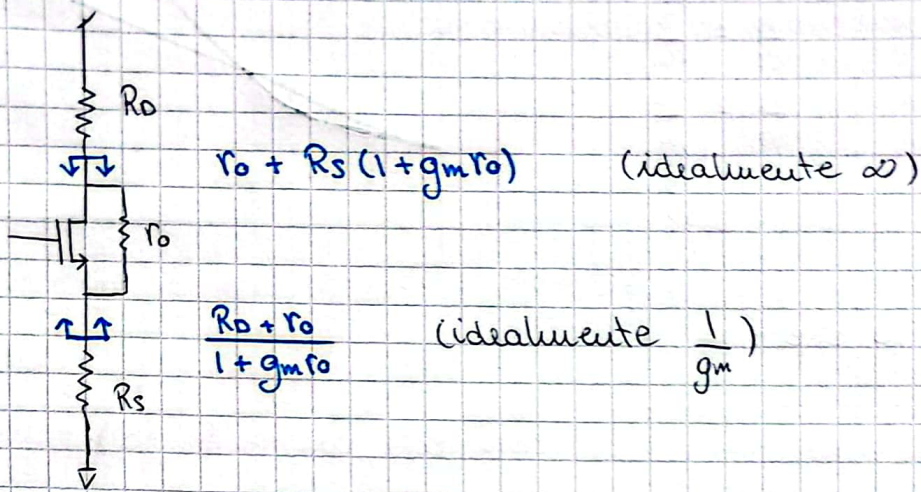 RD
r0 + Rs (1+gmr0) (idealmente ∞)
r0
RD + r0
1 + gmr0
(idealmente 1/gm)
Rs